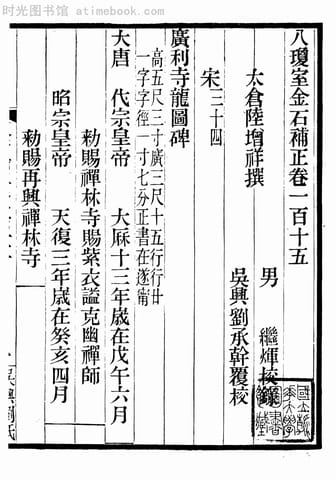 时光图书馆 atimebook.com
八瓊室金石補正卷一百十五
太倉陸增祥撰
男 繼煇校錄
吳興劉承幹覆校
宋三十四
廣利寺龍圖碑
高五尺三寸廣三尺十五行行廿
一字字徑一寸七分正書在遂甯
大唐 代宗皇帝 大厤十三年歲在戊午六月
勑賜禪林寺賜紫衣謚克幽禪師
昭宗皇帝 天復三年歲在癸亥四月
勑賜再興禪林寺
吳興劉氏